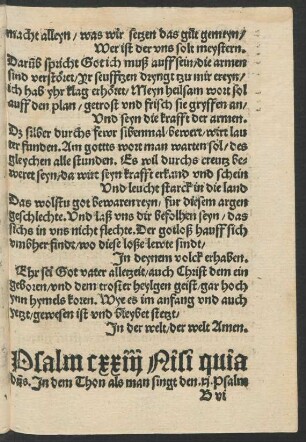 macht alleyn / was wir setzen das gilt gemeyn /
Wer ist der vns solt meystern.
Darũb spricht Got ich muß auff sein / die armen
sind verstöret / Yr seuffzen dryngt tzu mir ereyn /
ich hab yhr klag erhöret / Meyn heilsam wort sol
auff den plan / getrost vnd frisch sie gryffen an /
Vnd seyn die krafft der armen.
Dz silber durchs fewr sibenmal / bewert / wirt lau
ter funden. Am gottts wort man warten sol / des
gleychen alle stunden. Es wil durchs creutz be-
weret seyn / da wirt seyn krafft erkand vnd schein
Vnd leucht starck in die land
Das wolstu got bewaren reyn / fur diesem argen
geschlechte. Vnd laß vns dir befolhen seyn / das
sichs in vns nicht flechte. Der gotloß hauff sich
vmbher findt / wo diese loße lewte sindt /
In deynem volck erhaben.
Ehr sei Got vater allerzeit / auch Christ dem ein
geboren / vnd dem troster heylgen geist / gar hoch
ynn hymels koren. Wye es im anfang vnd auch
yetzt / gewesen ist vnd bleybet stetzt /
In der welt / der welt Amen.
Psalm cxxiij Nisi quia
dñs. In dem Thon als man singt den .xj. Psalm
B vi